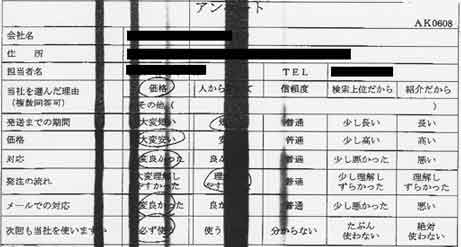 アンケート
AK0608
会社名
住 所
担当者名 TEL
当社を選んだ理由 価格 人から 信頼度 検索上位だから 紹介だから
(複数回答可) その他( )
発送までの期間 大変短い 普通 少し長い 長い
価格 大変安い 普通 少し高い 高い
対応 大変良かった 普通 少し悪かった 悪い
発注の流れ 大変理解しやすかった 普通 少し理解しずらかった 理解しずらかった
メールでの対応 大変良かった 普通 少し悪かった 悪い
次回も当社を使いますか 必ず使う 使う 分からない たぶん使わない 絶対使わない